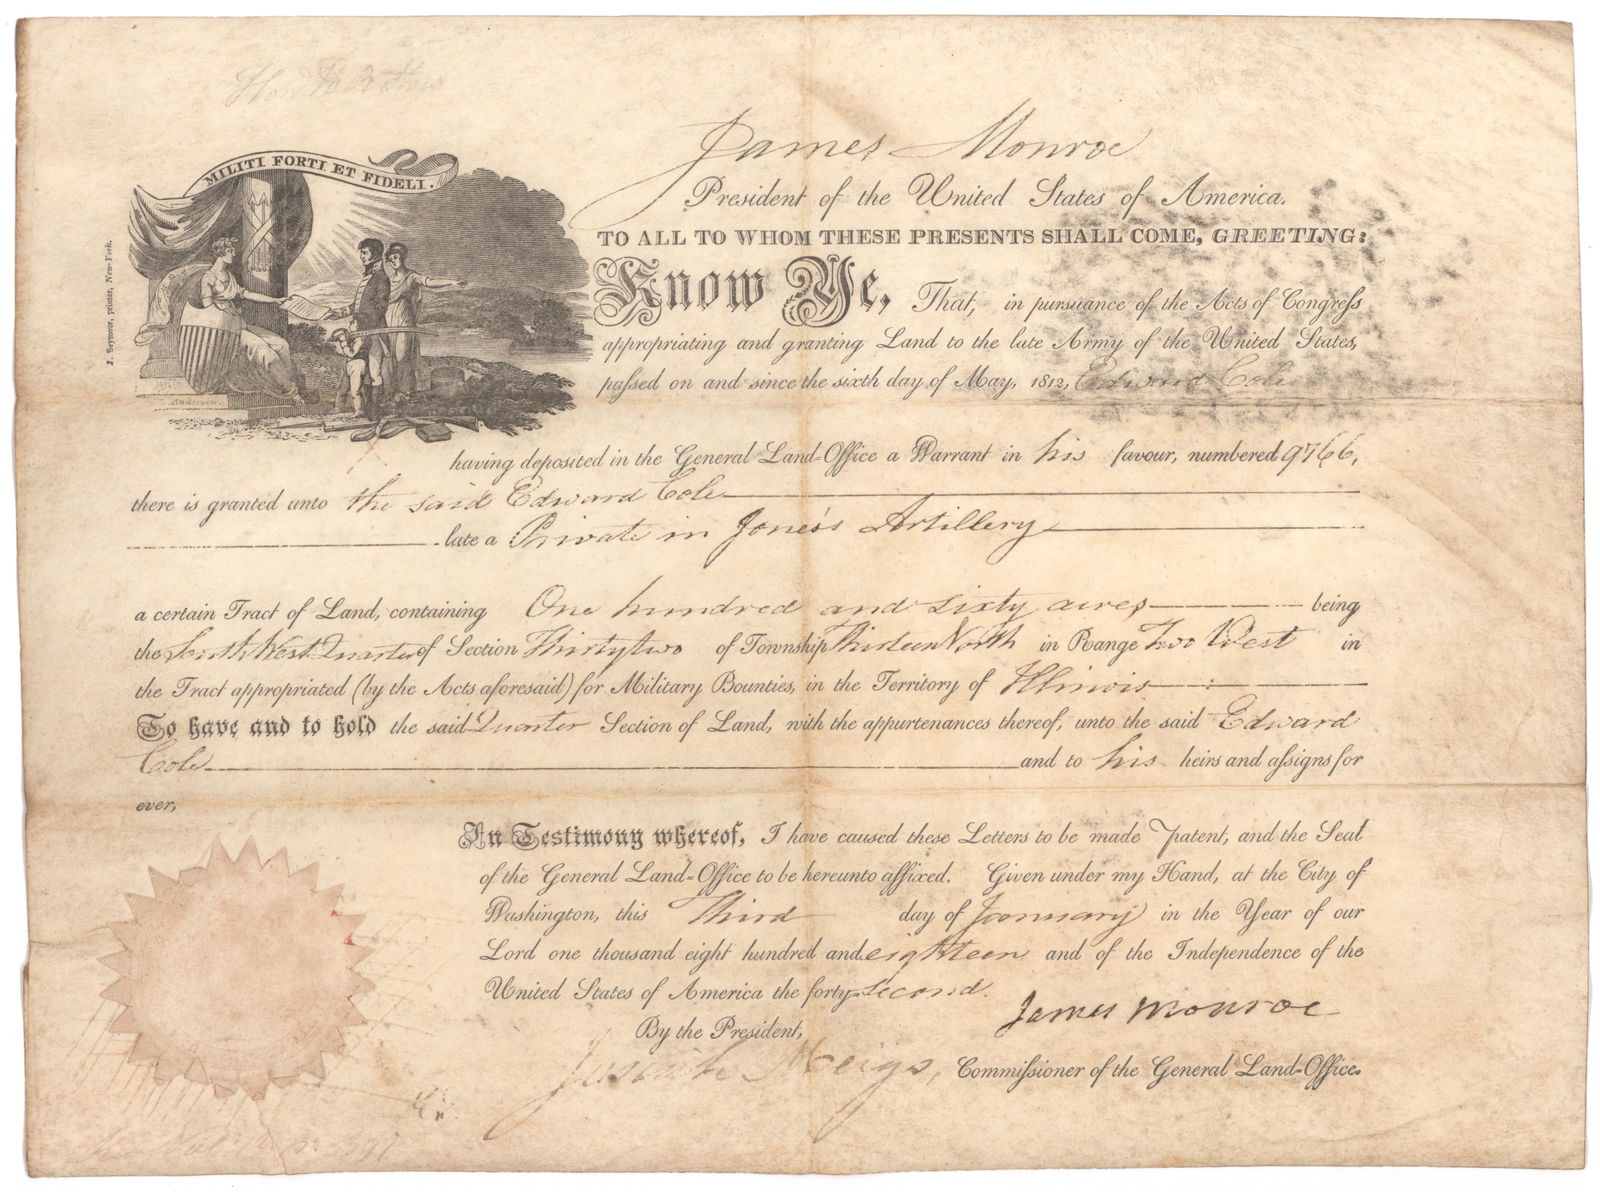 James Monroe
President of the United States of America.
MILITI FORTI ET FIDELI.
TO ALL TO WHOM THESE PRESENTS SHALL COME, GREETING:
J. Seymour, printer, New-York.
Know Ye, That, in pursuance of the Acts of Congress
appropriating and granting Land to the late Army of the United States,
passed on and since the sixth day of May, 1812, Edward Cole
Anderson
having deposited in the General Land-Office a Warrant in his favour, numbered 9766,
there is granted unto the said Edward Cole
late a Private in Jones's Artillery
a certain Tract of Land, containing One hundred and sixty acres being
the South West Quarter of Section Thirty two of Township Thirteen North in Range Two West in
the Tract appropriated (by the Acts aforesaid) for Military Bounties, in the Territory of Illinois
To have and to hold the said Quarter Section of Land, with the appurtenances thereof, unto the said Edward
Cole and to his heirs and assigns for
ever,
In Testimony whereof, I have caused these Letters to be made Patent, and the Seal
of the General Land-Office to be hereunto affixed. Given under my Hand, at the City of
Washington, this Third day of January in the Year of our
Lord one thousand eight hundred and eighteen and of the Independence of the
United States of America the forty-second.
James Monroe
By the President,
Josiah Meigs, Commissioner of the General Land-Office.